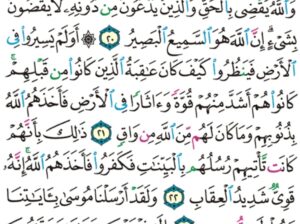 وَٱللَّهُ يَقْضِى بِٱلْحَقِّ وَٱلَّذِينَ يَدْعُونَ مِن دُونِهِۦ لَا يَقْضُونَ
بِشَىْءٍ إِنَّ ٱللَّهَ هُوَ ٱلسَّمِيعُ ٱلْبَصِيرُ ٢٠ ۞ أَوَلَمْ يَسِيرُوا۟ فِى
ٱلْأَرْضِ فَيَنظُرُوا۟ كَيْفَ كَانَ عَـٰقِبَةُ ٱلَّذِينَ كَانُوا۟ مِن قَبْلِهِمْ
كَانُوا۟ هُمْ أَشَدَّ مِنْهُمْ قُوَّةً وَءَاثَارًا فِى ٱلْأَرْضِ فَأَخَذَهُمُ ٱللَّهُ
بِذُنُوبِهِمْ وَمَا كَانَ لَهُم مِّنَ ٱللَّهِ مِن وَاقٍ ٢١ ذَٰلِكَ بِأَنَّهُمْ
كَانَت تَّأْتِيهِمْ رُسُلُهُم بِٱلْبَيِّنَـٰتِ فَكَفَرُوا۟ فَأَخَذَهُمُ ٱللَّهُ إِنَّهُۥ
قَوِىٌّ شَدِيدُ ٱلْعِقَابِ ٢٢ وَلَقَدْ أَرْسَلْنَا مُوسَىٰ بِـَٔايَـٰتِنَا